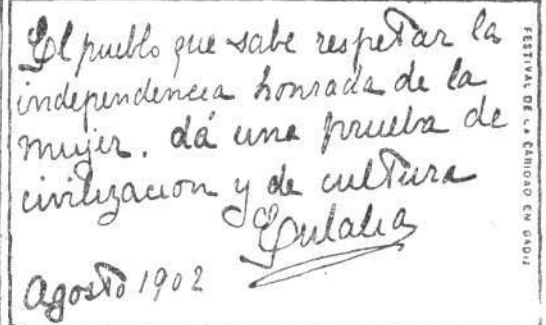 El pueblo que sabe respetar la
independencia honrada de la
mujer. dá una prueba de
civilizacion y de cultura
Eulalia
Agosto 1902
FESTIVAL DE LA CARIDAD EN CADIZ